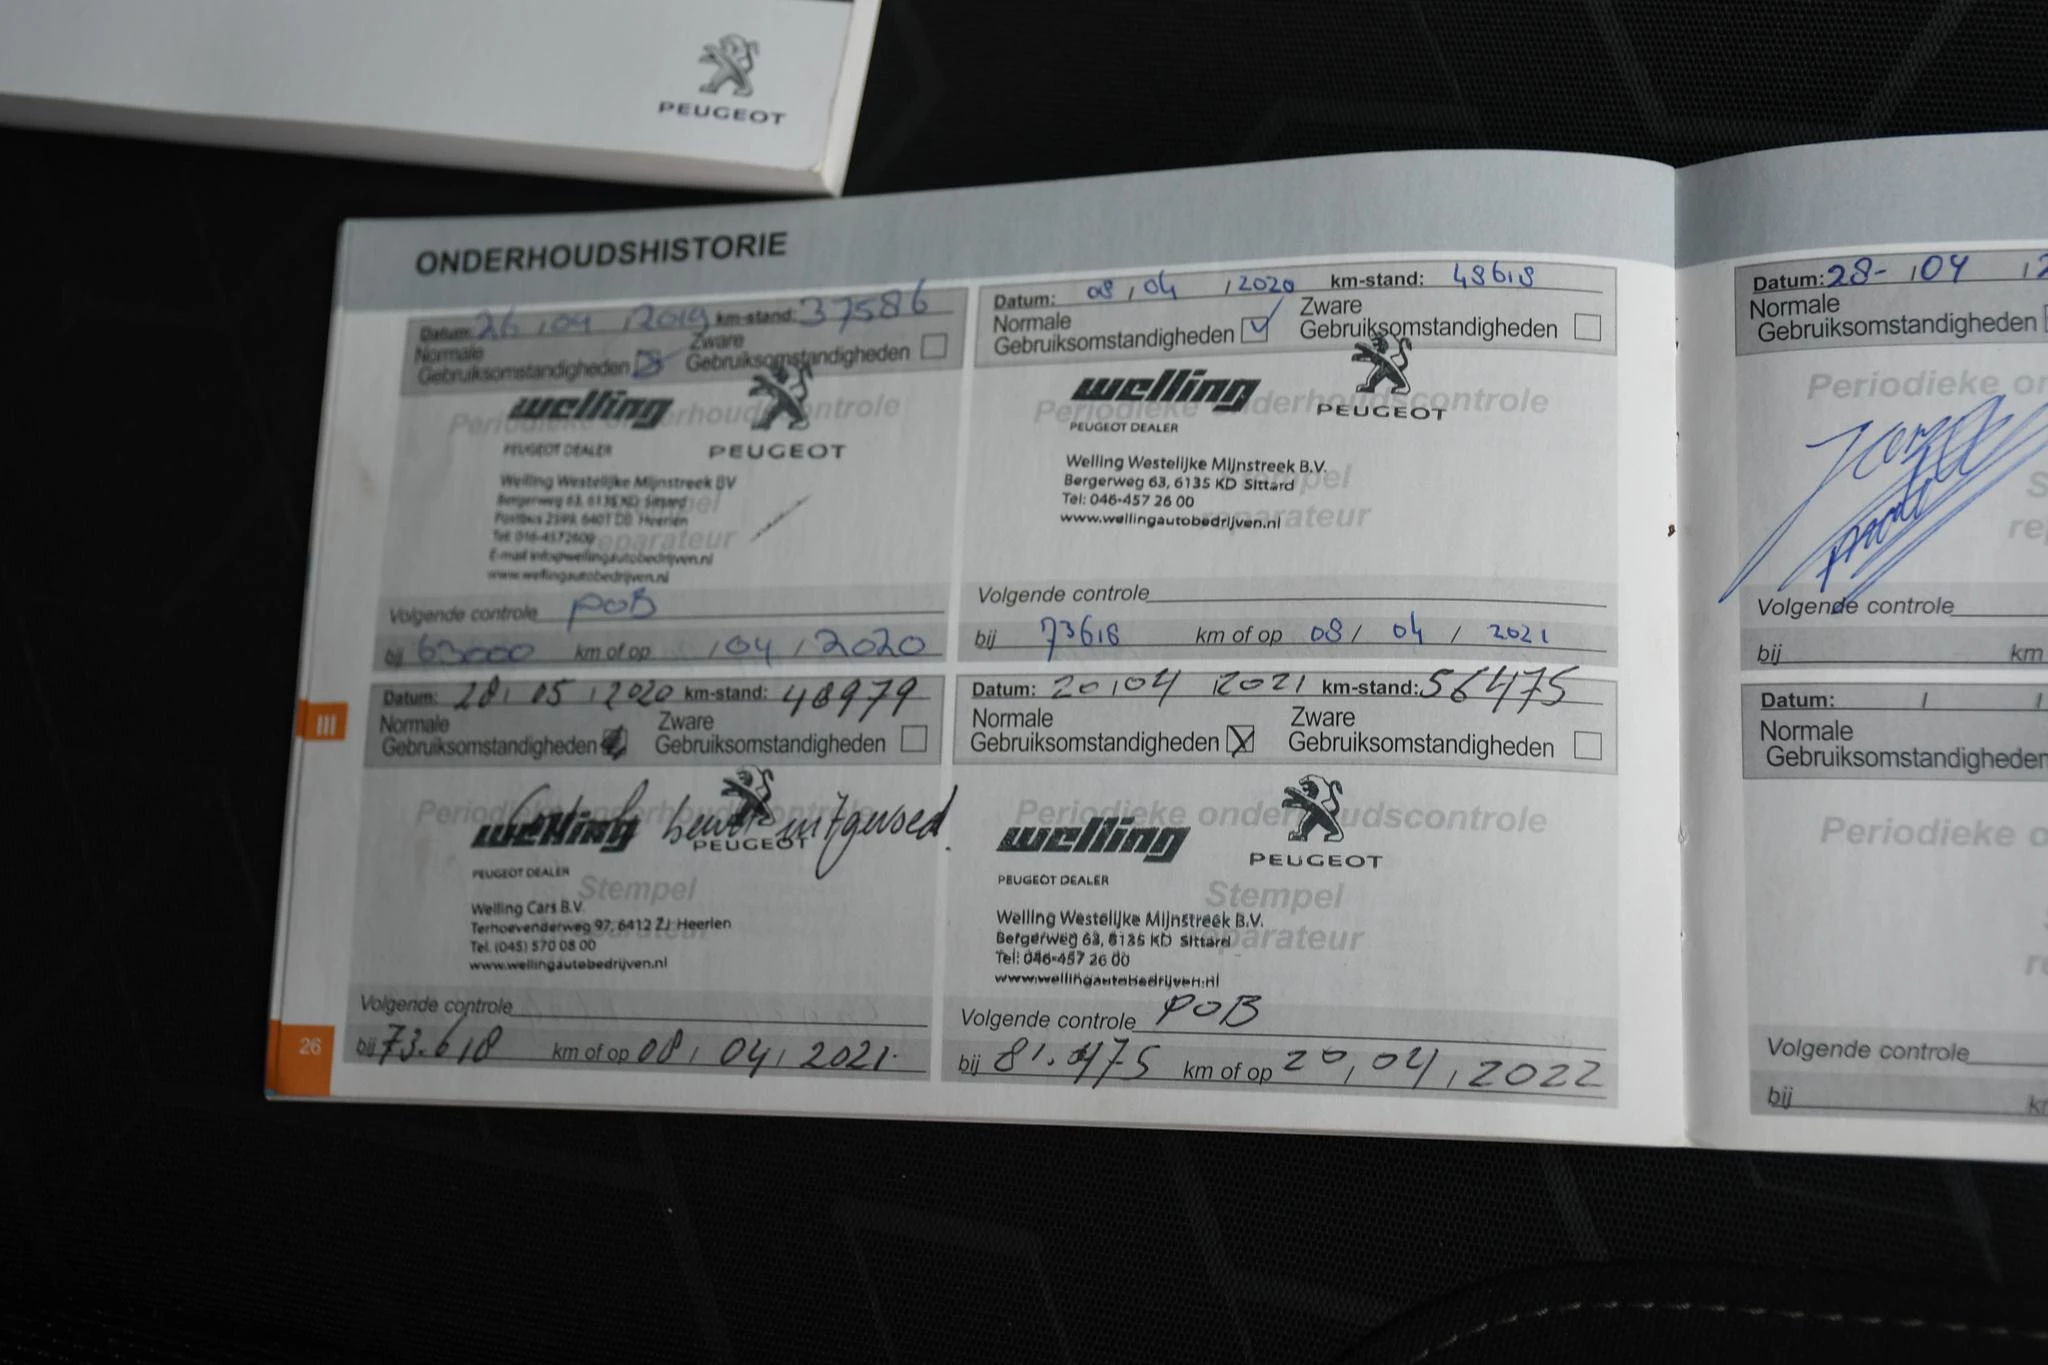 PEUGEOT
ONDERHOUDSHISTORIE
Datum: 26 / 04 / 2019 km-stand: 37586
Normale
Gebruiksomstandigheden
Zware
Gebruiksomstandigheden
Periodieke onderhoudscontrole
welling
PEUGEOT DEALER
PEUGEOT
Welling Westelijke Mijnstreek BV
Bergerweg 63, 6135 KD Sittard
Postbus 2599, 6401 DB Heerlen
Tel: 046-4572600
E-mail info@wellingautobedrijven.nl
www.wellingautobedrijven.nl
Volgende controle POB
bij 63000 km of op / 04 / 2020
Datum: 08 / 04 / 2020 km-stand: 48618
Normale
Gebruiksomstandigheden
Zware
Gebruiksomstandigheden
Periodieke onderhoudscontrole
welling
PEUGEOT DEALER
PEUGEOT
Welling Westelijke Mijnstreek B.V.
Bergerweg 63, 6135 KD Sittard
Tel: 046-457 26 00
www.wellingautobedrijven.nl
Volgende controle
bij 73618 km of op 08 / 04 / 2021
Datum: 28 / 05 / 2020 km-stand: 48979
Normale
Gebruiksomstandigheden
Zware
Gebruiksomstandigheden
Periodieke onderhoudscontrole
uitgevoed.
welling
PEUGEOT DEALER
PEUGEOT
Stempel
Welling Cars B.V.
Terhoevenderweg 97, 6412 ZJ Heerlen
Tel. (045) 570 08 00
www.wellingautobedrijven.nl
Volgende controle
bij 73.618 km of op 08 / 04 / 2021.
Datum: 20 / 04 / 2021 km-stand: 56475
Normale
Gebruiksomstandigheden
Zware
Gebruiksomstandigheden
Periodieke onderhoudscontrole
welling
PEUGEOT DEALER
PEUGEOT
Stempel
reparateur
Welling Westelijke Mijnstreek B.V.
Bergerweg 63, 6135 KD Sittard
Tel: 046-457 26 00
www.wellingautobedrijven.nl
Volgende controle POB
bij 81.475 km of op 20 / 04 / 2022
III
26
Datum: 28- / 04 / 2
Normale
Gebruiksomstandigheden
Periodieke on
S
re
Volgende controle
bij km
Datum: / /
Normale
Gebruiksomstandigheden
Periodieke o
Volgende controle
bij k